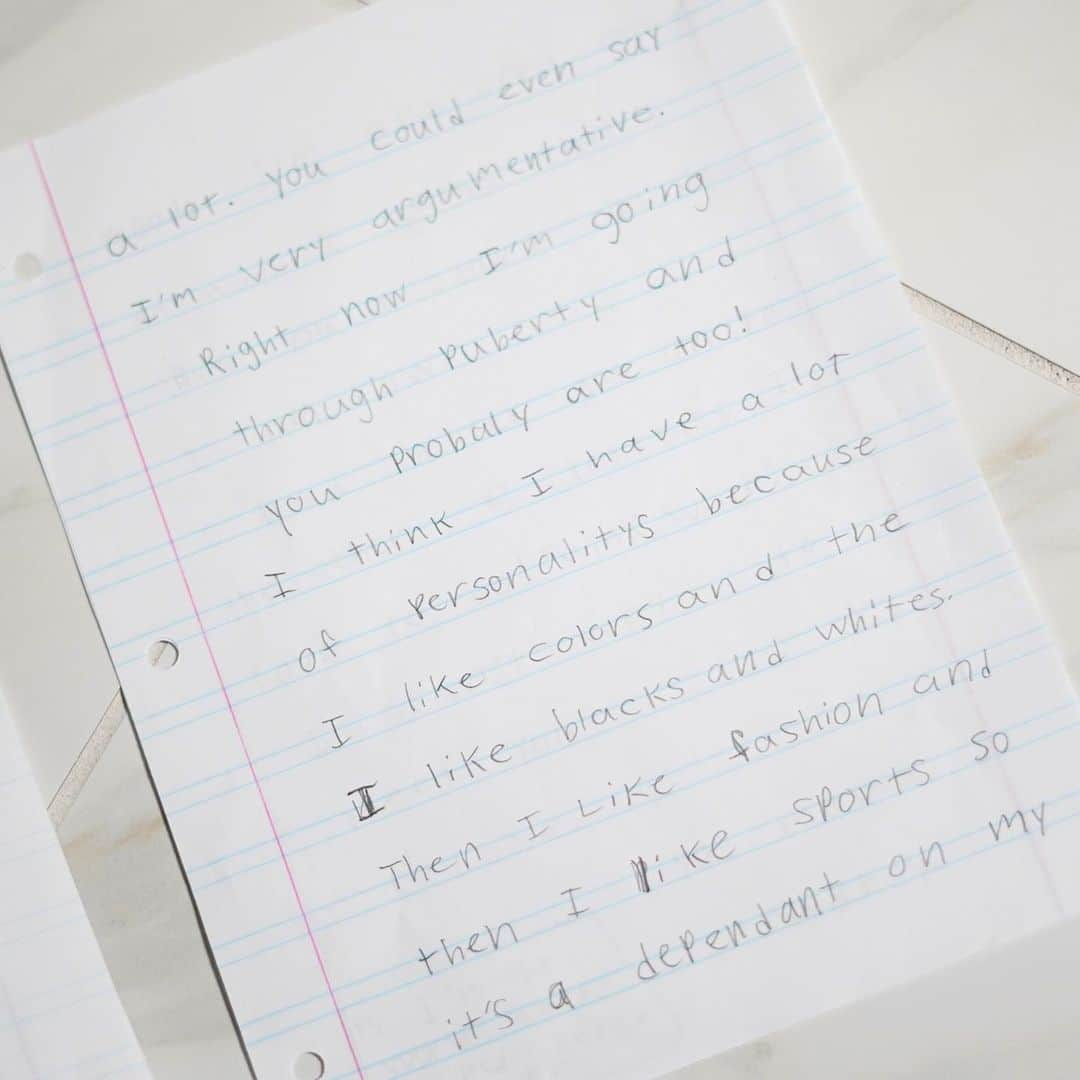 a lot. You could even say
I'm very argumentative.
Right now I'm going
through puberty and
you probaly are too!
I think I have a lot
of personalitys because
I like colors and the
I like blacks and whites.
Then I Like fashion and
then I like sports so
it's a dependant on my